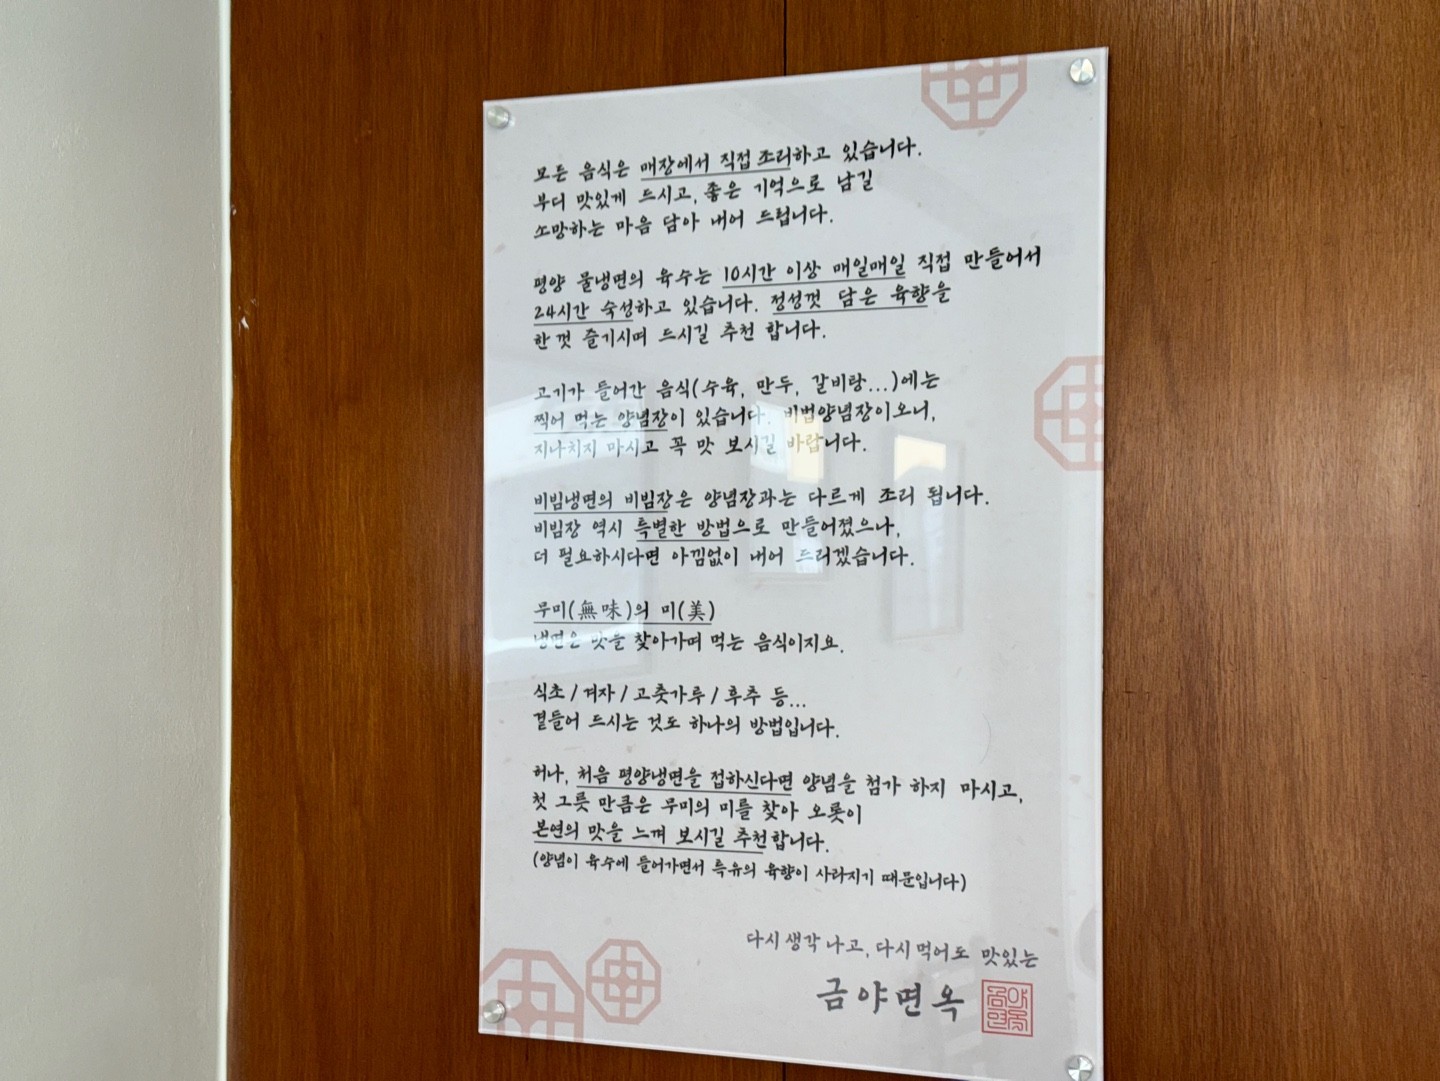 모든 음식은 매장에서 직접 조리하고 있습니다.
부디 맛있게 드시고, 좋은 기억으로 남길
소망하는 마음 담아 내어 드립니다.
평양 물냉면의 육수는 10시간 이상 매일매일 직접 만들어서
24시간 숙성하고 있습니다. 정성껏 담은 육향을
한껏 즐기시며 드시길 추천 합니다.
고기가 들어간 음식(수육, 만두, 갈비탕...)에는
찍어 먹는 양념장이 있습니다. 비법양념장이오니,
지나치지 마시고 꼭 맛 보시길 바랍니다.
비빔냉면의 비빔장은 양념장과는 다르게 조리 됩니다.
비빔장 역시 특별한 방법으로 만들어졌으나,
더 필요하시다면 아낌없이 내어 드리겠습니다.
무미(無味)의 미(美)
냉면은 맛을 찾아가며 먹는 음식이지요.
식초 / 겨자 / 고춧가루 / 후추 등...
곁들어 드시는 것도 하나의 방법입니다.
허나, 처음 평양냉면을 접하신다면 양념을 첨가 하지 마시고,
첫 그릇 만큼은 무미의 미를 찾아 오롯이
본연의 맛을 느껴 보시길 추천합니다.
(양념이 육수에 들어가면서 특유의 육향이 사라지기 때문입니다)
다시 생각 나고, 다시 먹어도 맛있는
금야면옥
금야면옥